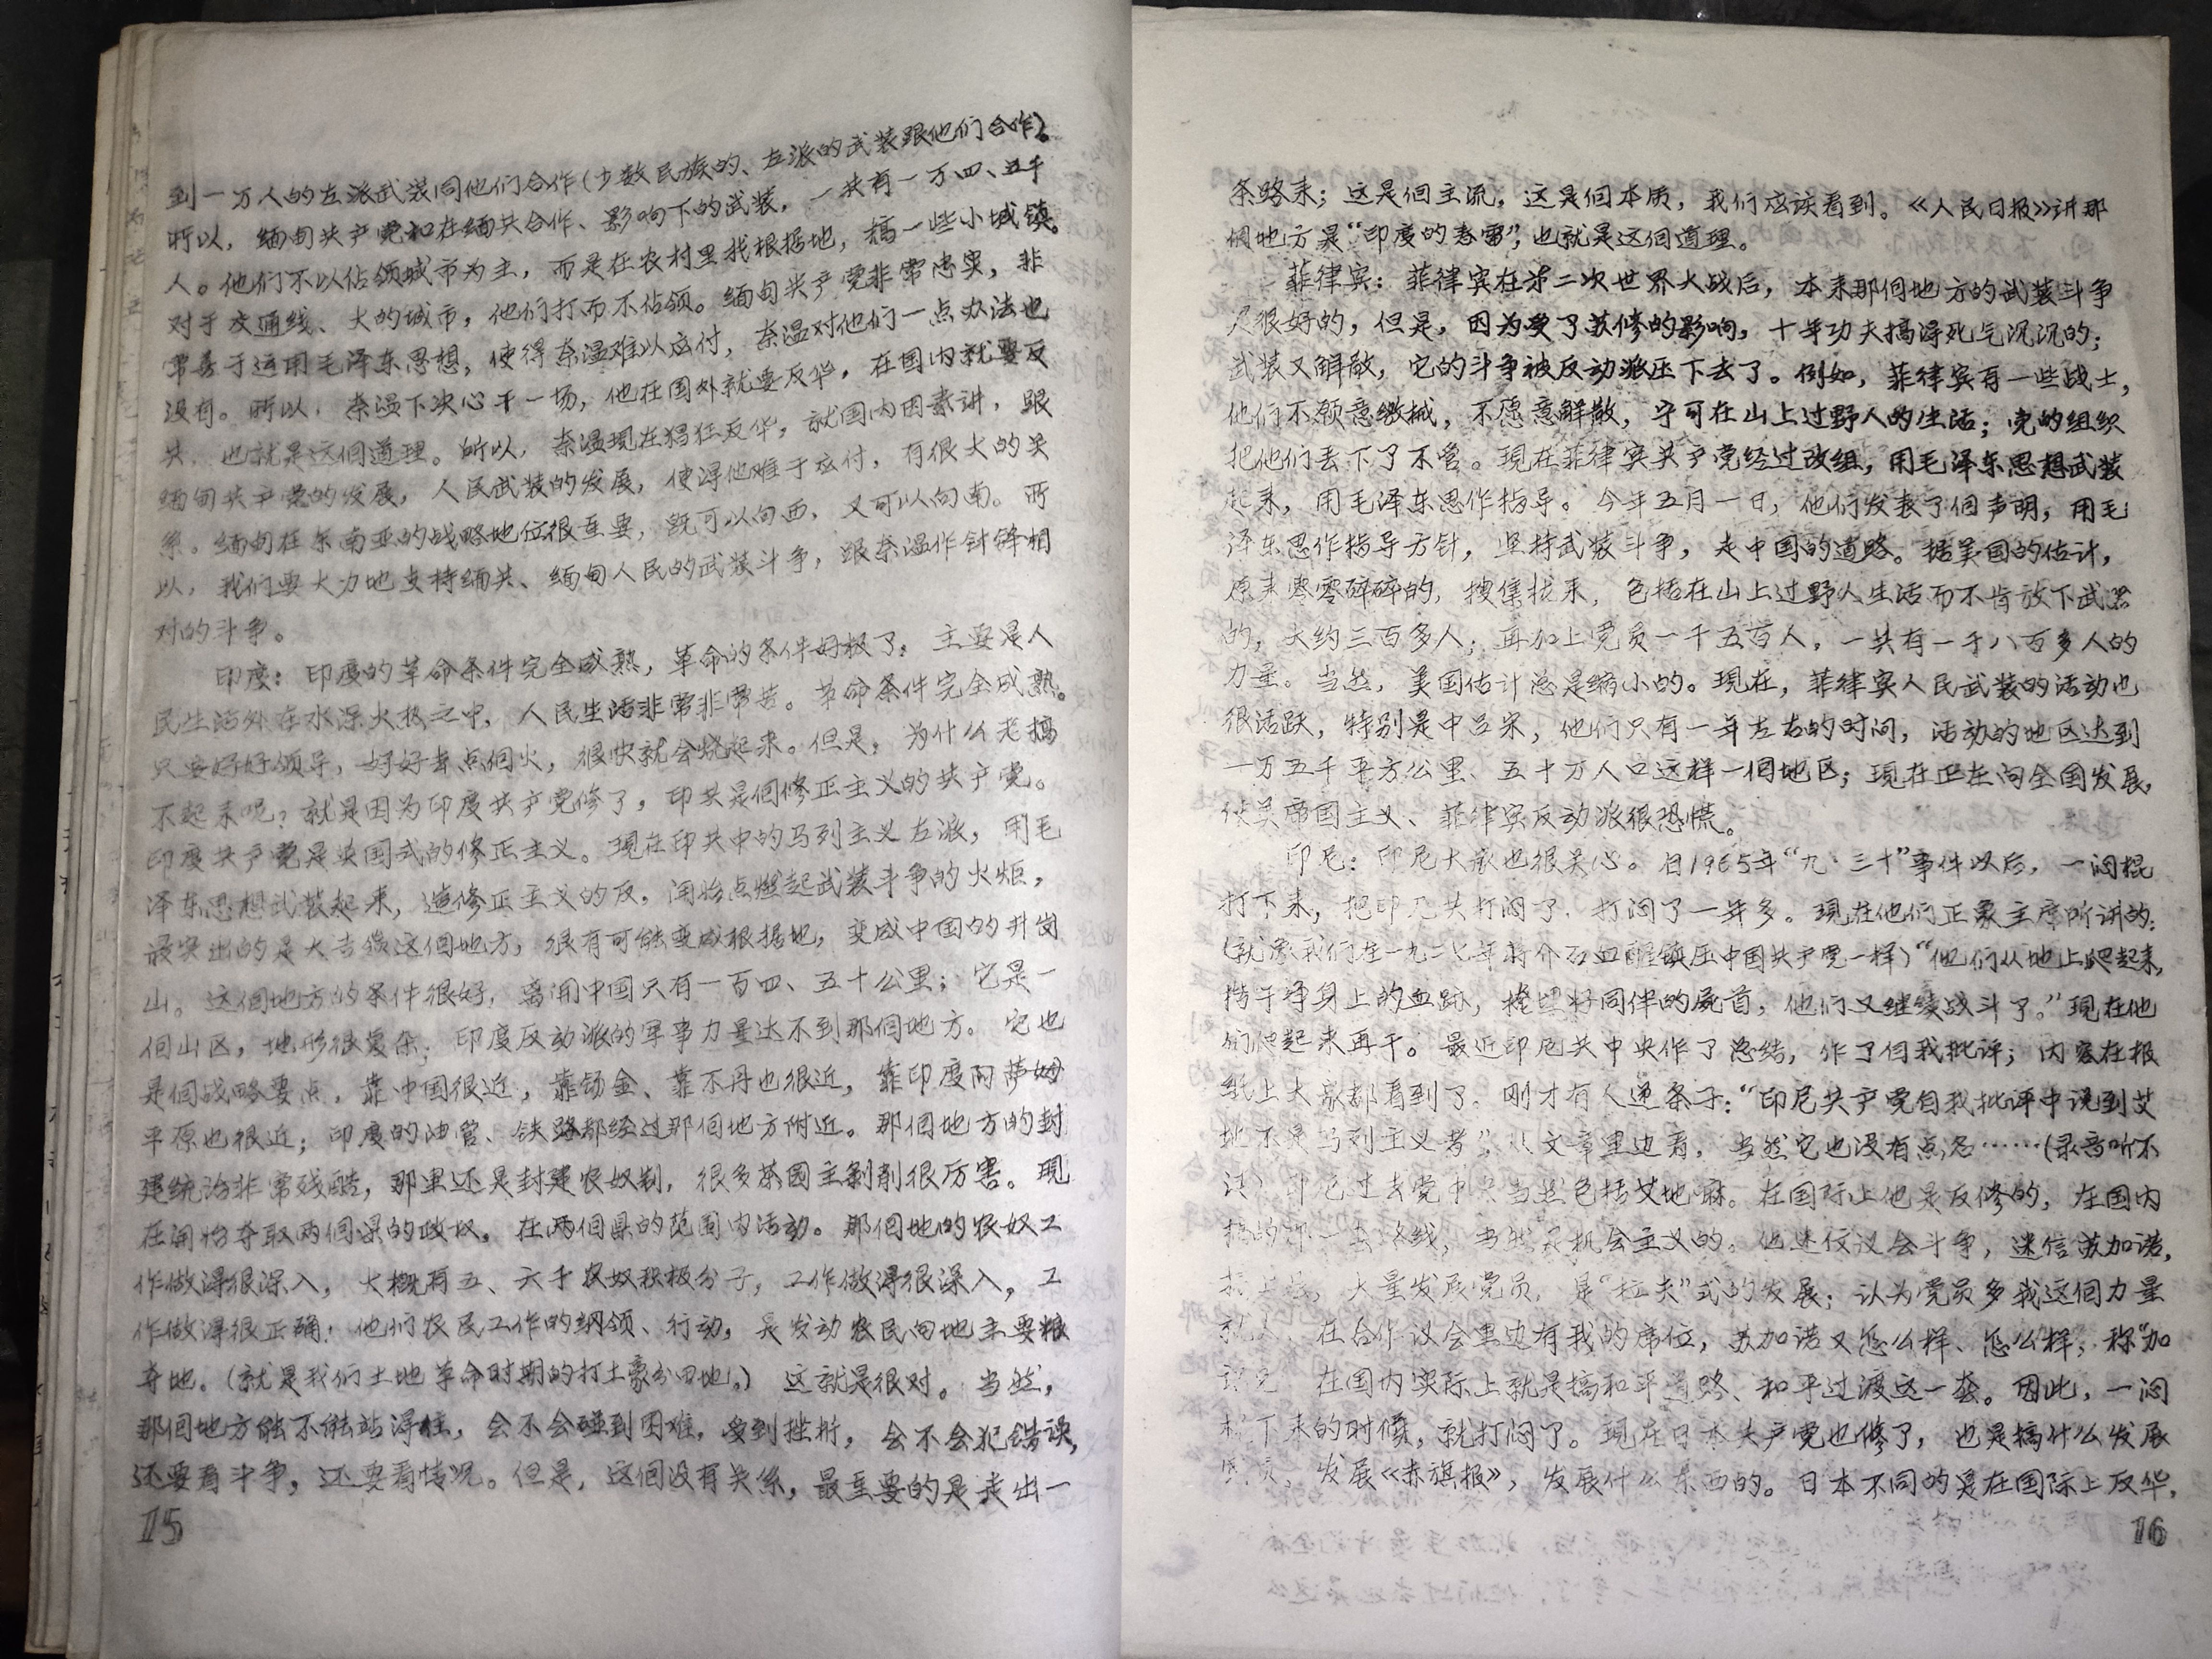 到一万人的左派武装同他们合作(少数民族的、左派的武装跟他们合作)。
所以，缅甸共产党和在缅共合作、影响下的武装，一共有一万四、五千
人。他们不以佔领城市为主，而是在农村里找根据地，搞一些小城镇。
对于交通线、大的城市，他们打而不佔领。缅甸共产党非常忠实，非
常善于运用毛泽东思想，使得奈温难以应付，奈温对他们一点办法也
没有。所以，奈温下决心干一场，他在国外就要反华，在国内就要反
共，也就是这個道理。所以，奈温现在猖狂反华，就国内因素讲，跟
缅甸共产党的发展，人民武装的发展，使得他难于应付，有很大的关
系。缅甸在东南亚的战略地位很重要，既可以向西，又可以向南。所
以，我们要大力地支持缅共、缅甸人民的武装斗争，跟奈温作针锋相
对的斗争。
印度：印度的革命条件完全成熟，革命的条件好极了，主要是人
民生活处在水深火热之中，人民生活非常非常苦。革命条件完全成熟。
只要好好领导，好好去点個火，很快就会烧起来。但是，为什么老搞
不起来呢？就是因为印度共产党修了，印共是個修正主义的共产党。
印度共产党是英国式的修正主义。现在印共中的马列主义左派，用毛
泽东思想武装起来，造修正主义的反，開始点燃起武装斗争的火炬，
最突出的是大吉嶺这個地方，很有可能变成根据地，变成中国的井岗
山。这個地方的条件很好，离開中国只有一百四、五十公里；它是一
個山区，地形很复杂；印度反动派的军事力量达不到那個地方。它也
是個战略要点，靠中国很近，靠锡金、靠不丹也很近，靠印度阿萨姆
平原也很近；印度的油管、铁路都经过那個地方附近。那個地方的封
建统治非常残酷，那里还是封建农奴制，很多茶园主剥削很厉害。现
在開始夺取两個県的政权，在两個県的范围内活动。那個地的农奴工
作做得很深入，大概有五、六千农奴积极分子，工作做得很深入，工
作做得很正确；他们农民工作的纲领、行动，是发动农民向地主要粮
夺地。(就是我们土地革命时期的打土豪分田地。)这就是很对。当然，
那個地方能不能站得住，会不会碰到困难，受到挫折，会不会犯错误，
还要看斗争，还要看情况。但是，这個没有关系，最主要的是走出一
15
条路来；这是個主流，这是個本质，我们应该看到。《人民日报》讲那
個地方是“印度的春雷”，也就是这個道理。
菲律宾：菲律宾在第二次世界大战后，本来那個地方的武装斗争
是很好的，但是，因为受了苏修的影响，十年功夫搞得死气沉沉的；
武装又解散，它的斗争被反动派压下去了。例如，菲律宾有一些战士，
他们不愿意缴械，不愿意解散，宁可在山上过野人的生活；党的组织
把他们丢下了不管。现在菲律宾共产党经过改组，用毛泽东思想武装
起来，用毛泽东思作指导。今年五月一日，他们发表了個声明，用毛
泽东思作指导方针，坚持武装斗争，走中国的道路。据美国的估计，
原来零零碎碎的，搜集拢来，包括在山上过野人生活而不肯放下武器
的，大约三百多人；再加上党员一千五百人，一共有一千八百多人的
力量。当然，美国估计总是缩小的。现在，菲律宾人民武装的活动也
很活跃，特别是中吕宋，他们只有一年左右的时间，活动的地区达到
一万五千平方公里、五十万人口这样一個地区；现在正在向全国发展，
使美帝国主义、菲律宾反动派很恐慌。
印尼：印尼大家也很关心。自1965年“九·三十”事件以后，一闷棍
打下来，把印尼共打闷了，打闷了一年多。现在他们正象主席所讲的：
(就象我们在一九二七年蒋介石血醒镇压中国共产党一样)“他们从地上爬起来，
揩干净身上的血跡，掩埋好同伴的屍首，他们又继续战斗了。”现在他
们爬起来再干。最近印尼共中央作了总结，作了自我批评；内容在报
纸上大家都看到了。刚才有人递条子：“印尼共产党自我批评中说到艾
地不是马列主义者”，从文章里边看，当然它也没有点名……(录音听不
清)印尼过去党中央当然包括艾地嘛。在国际上他是反修的，在国内
搞的那一套路线，当然是机会主义的。他迷信议会斗争，迷信苏加诺，
大量发展党员，是“拉夫”式的发展；认为党员多我这個力量
就，在合作议会里边有我的席位，苏加诺又怎么样、怎么样，称“加
在国内实际上就是搞和平道路、和平过渡这一套。因此，一闷
棍下来的时候，就打闷了。现在日本共产党也修了，也是搞什么发展
党员，发展《赤旗报》，发展什么东西的。日本不同的是在国际上反华，
16